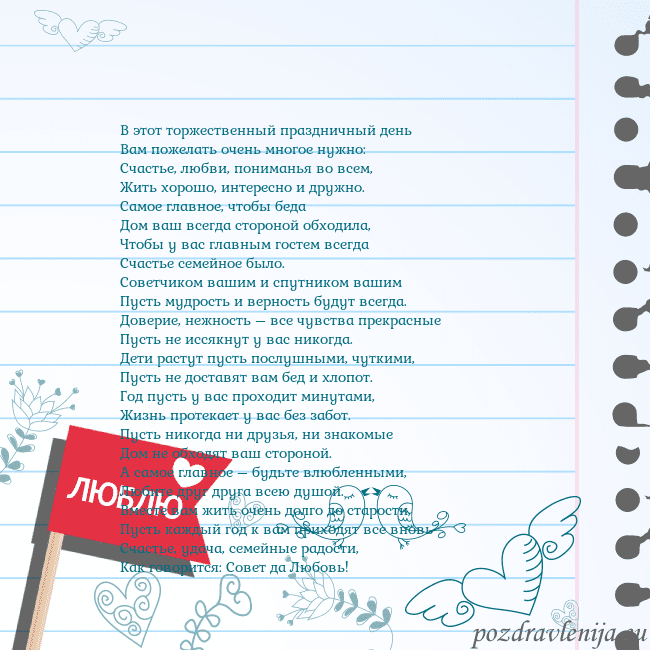 В этот торжественный праздничный день
Вам пожелать очень многое нужно:
Счастье, любви, пониманья во всем,
Жить хорошо, интересно и дружно.
Самое главное, чтобы беда
Дом ваш всегда стороной обходила,
Чтобы у вас главным гостем всегда
Счастье семейное было.
Советчиком вашим и спутником вашим
Пусть мудрость и верность будут всегда.
Доверие, нежность — все чувства прекрасные
Пусть не иссякнут у вас никогда.
Дети растут пусть послушными, чуткими,
Пусть не доставят вам бед и хлопот.
Год пусть у вас проходит минутами,
Жизнь протекает у вас без забот.
Пусть никогда ни друзья, ни знакомые
Дом не обходят ваш стороной.
А самое главное — будьте влюбленными,
Любите друг друга всею душой.
Вместе вам жить очень долго до старости,
Пусть каждый год к вам приходят все вновь
Счастье, удача, семейные радости,
Как говорится: Совет да Любовь!
ЛЮБЛЮ
pozdravlenija.eu